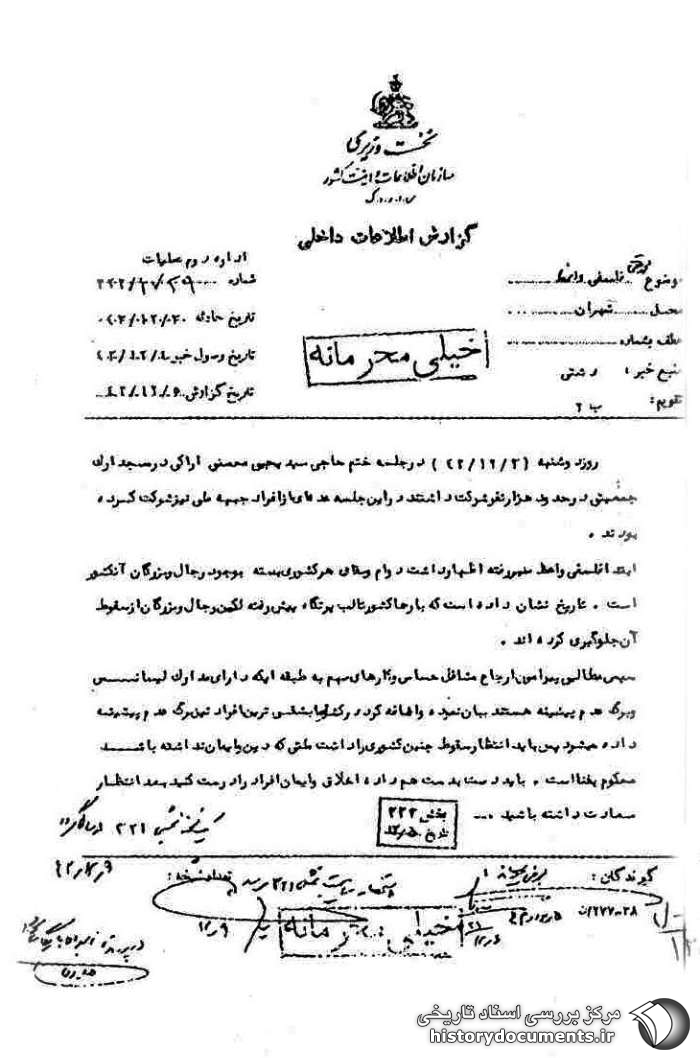 نخست وزیری
سازمان اطلاعات و امنیت کشور
س.ا.و.ا.ک
گزارش اطلاعات داخلی
اداره دوم عملیات
موضوع فلسفی واعظ
شماره
محل تهران
تاریخ حادثه
عطف بشماره
تاریخ وصول خبر
منبع خبر :
تاریخ گزارش
تقویم : ب ۲
خیلی محرمانه
روز دوشنبه (۴۲/۱۲/۲) در جلسه ختم حاجی سید یحیی محسنی اراکی در مسجد ارک
جمعیتی در حدود هزار نفر شرکت داشتند در این جلسه عده‌ای از افراد جبهه ملی نیز شرکت کرده
بودند .
ابتدا فلسفی واعظ منبر رفته اظهار داشت دوام و بقای هر کشوری بسته بوجود رجال و بزرگان آنکشور
است . تاریخ نشان داده است که بارها کشور تا لب پرتگاه پیش رفته لکن رجال و بزرگان از سقوط
آن جلوگیری کرده اند .
سپس مطالبی پیرامون ارجاع مشاغل حساس و کارهای مهم به طبقه ایکه دارای مدارک لیسانس
و برگ عدم پیشینه هستند بیان نموده و اضافه کرد در کشور ما بشقی ترین افراد نیز برگ عدم پیشینه
داده میشود پس باید انتظار سقوط چنین کشوری را داشت ملتی که دین و ایمان نداشته باشد
محکوم بفنا است . باید دست بدست هم داده اخلاق و ایمان افراد را درست کنید بعد انتظار
سعادت داشته باشید ...
بخش ۲۲۲
تاریخ
گیرندگان :
تعداد نسخه :
خیلی محرمانه
مرکز بررسی اسناد تاریخی
historydocuments.ir